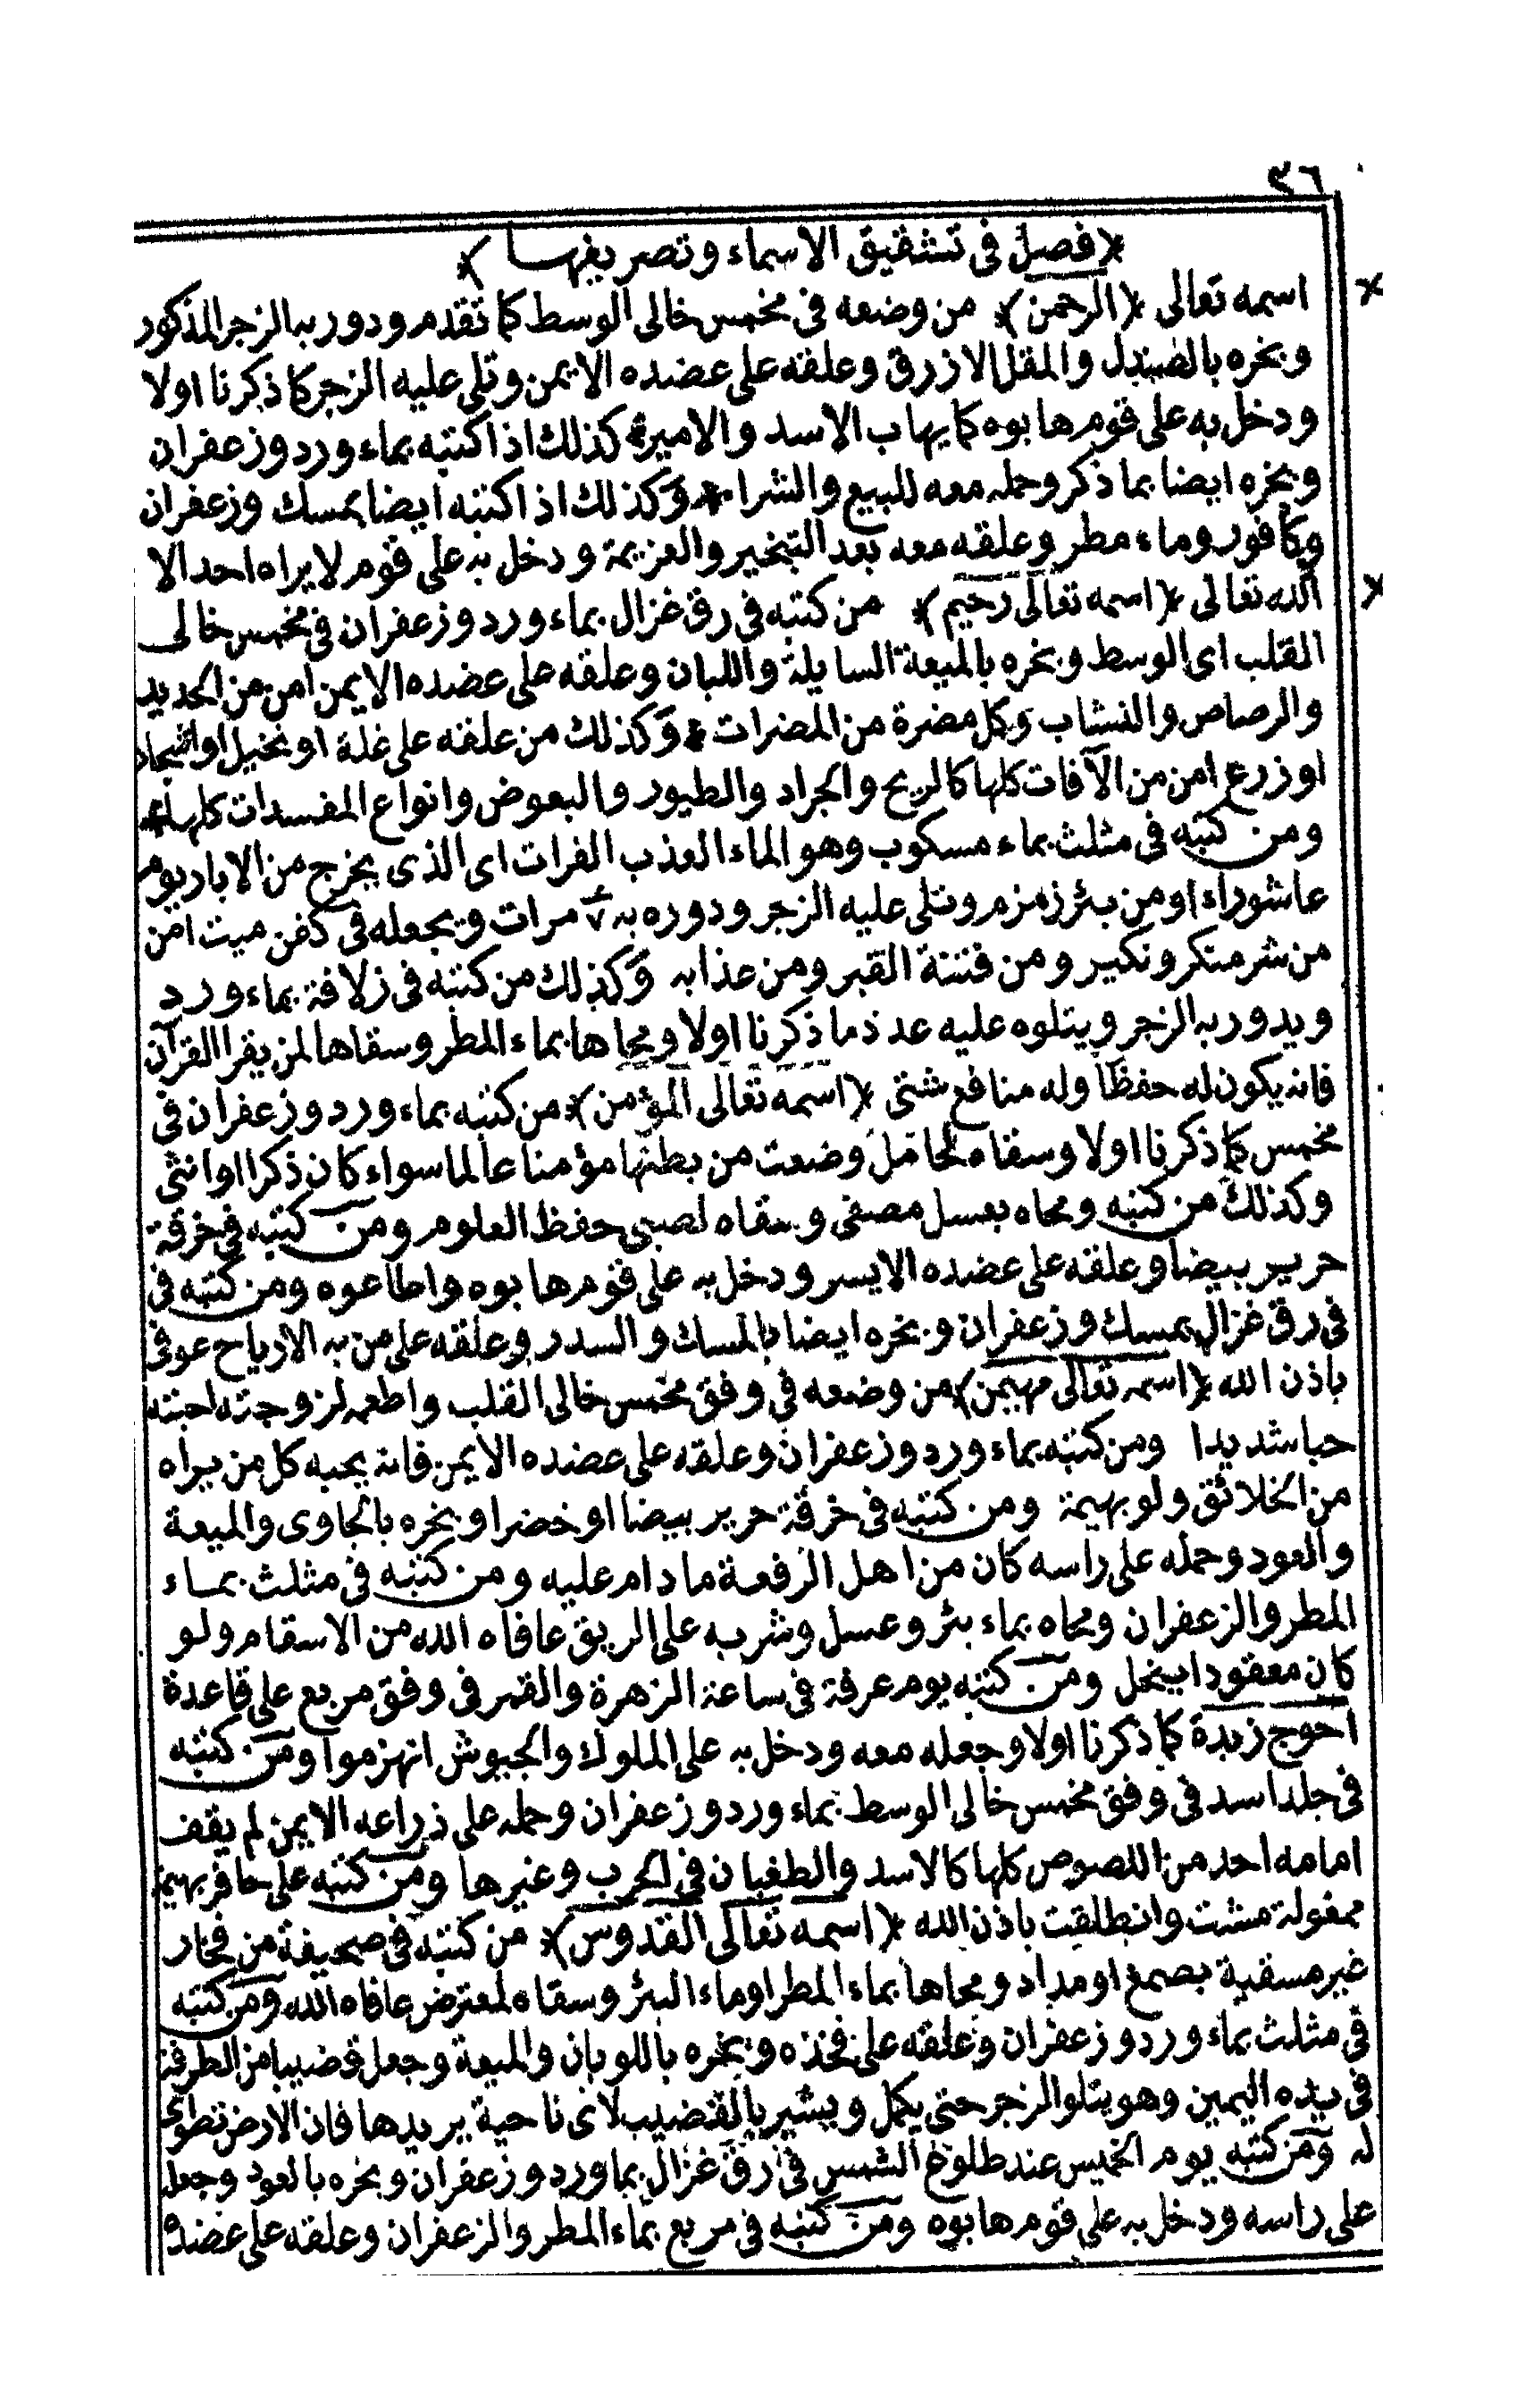 ٢٦
﴿ فصل فى تشقيق الاسماء وتصريفها ﴾
اسمه تعالى ﴿ الرحمن ﴾ من وضعه فى مخمس خالى الوسط كما تقدم ودور به الزجر المذكور
وبخره بالصندل والمقل الازرق وعلقه على عضده الايمن وتلى عليه الزجر كما ذكرنا اولا
ودخل به على قوم هابوه كما يهاب الاسد والامير كذلك اذا كتبه بماء ورد وزعفران
وبخره ايضا بما ذكر وحمله معه للبيع والشراء وكذلك اذا كتبه ايضا بمسك وزعفران
وكافور وماء مطر وعلقه معه بعد التبخير والعزيمة ودخل به على قوم لا يراه احد الا
الله تعالى ﴿ اسمه تعالى رحيم ﴾ من كتبه فى رق غزال بماء ورد وزعفران فى مخمس خالى
القلب اى الوسط وبخره بالميعة السايلة واللبان وعلقه على عضده الايمن امن من الحديد
والرصاص والنشاب وكل مضرة من المضرات وكذلك من علقه على غلة او نخيل او اشجار
او زرع امن من الآفات كلها كالريح والجراد والطيور والبعوض وانواع المفسدات كلها
ومن كتبه فى مثلث بماء مسكوب وهو الماء العذب الفرات اى الذى يخرج من الابار يوم
عاشوراء او من بئر زمزم وتلى عليه الزجر ودوره به ٧ مرات ويجعله فى كفن ميت امن
من شر منكر ونكير ومن فتنة القبر ومن عذابه وكذلك من كتبه فى زلافة بماء ورد
ويدور به الزجر ويتلوه عليه عدد ما ذكرنا اولا ومحاها بماء المطر وسقاها لمن يقرا القرآن
فانه يكون له حفظا وله منافع شتى ﴿ اسمه تعالى المؤمن ﴾ من كتبه بماء ورد وزعفران فى
مخمس كما ذكرنا اولا وسقاه لحامل وضعت من بطنها مؤمنا عالما سواء كان ذكرا او انثى
وكذلك من كتبه ومحاه بعسل مصفى وسقاه لصبى حفظ العلوم ومن كتبه فى خرقة
حرير بيضا وعلقه على عضده الايسر ودخل به على قوم هابوه واطاعوه ومن كتبه فى
فى رق غزال بمسك وزعفران وبخره ايضا بالمسك والسدر وعلقه على من به الارياح عوفى
باذن الله ﴿ اسمه تعالى مهيمن ﴾ من وضعه فى وفق مخمس خالى القلب واطعمه لزوجته احبته
حبا شديدا ومن كتبه بماء ورد وزعفران وعلقه على عضده الايمن فانه يحبه كل من يراه
من الخلائق ولو بهيمة ومن كتبه فى خرقة حرير بيضا او خضرا وبخره بالجاوى والميعة
والعود وحمله على راسه كان من اهل الرفعة ما دام عليه ومن كتبه فى مثلث بماء
المطر والزعفران ومحاه بماء بئر وعسل وشربه على الريق عافاه الله من الاسقام ولو
كان معقودا ينحل ومن كتبه يوم عرفة فى ساعة الزهرة والقمر فى وفق مربع على قاعدة
احوج زبدة كما ذكرنا اولا وجعله معه ودخل به على الملوك والجيوش انهزموا ومن كتبه
فى جلد اسد فى وفق مخمس خالى الوسط بماء ورد وزعفران وحمله على ذراعه الايمن لم يقف
امامه احد من اللصوص كلها كالاسد والطغيان فى الحرب وغيرها ومن كتبه على حافر بهيمة
معقولة مشت وانطلقت باذن الله ﴿ اسمه تعالى القدوس ﴾ من كتبه فى صحيفة من فخار
غير مسقية بصمغ او مداد ومحاها بماء المطر او ماء البئر وسقاه لمعترض عافاه الله ومن كتبه
فى مثلث بماء ورد وزعفران وعلقه على فخذه وبخره باللوبان والميعة وجعل قضيبا من الطرفة
فى يده اليمين وهو يتلو الزجر حتى يكمل ويشير بالقضيب لاى ناحية يريدها فان الارض تطوى
له ومن كتبه يوم الخميس عند طلوع الشمس فى رق غزال بما ورد وزعفران وبخره بالعود وجعله
على راسه ودخل به على قوم هابوه ومن كتبه فى مربع بماء المطر والزعفران وعلقه على عضده